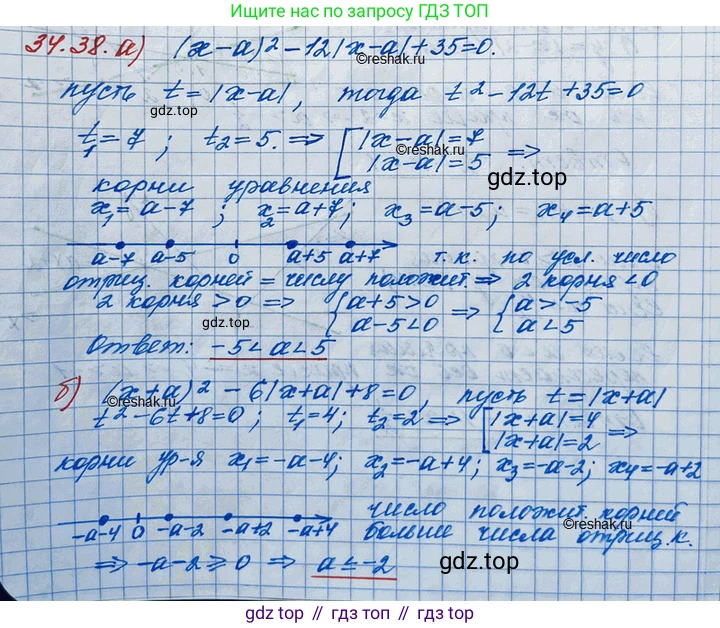 Ищите ответы по запросу ГДЗ ТОП
34.38. а) (x-a)² - 12|x-a| + 35 = 0.
©reshak.ru
пусть t = |x-a|, тогда t² - 12t + 35 = 0
gdz.top
t₁ = 7; t₂ = 5. ⇒ [|x-a| = 7
|x-a| = 5 ⇒
gdz.top
корни уравнения
x₁ = a-7; x₂ = a+7; x₃ = a-5; x₄ = a+5
a-7 a-5 0 a+5 a+7 т.к. по усл. число
отриц. корней = числу положит. ⇒ 2 корня < 0
2 корня > 0 ⇒ {a+5 > 0 ⇒ {a > -5
a-5 < 0 a < 5
gdz.top
Ответ: -5 < a < 5
б) (x+a)² - 6|x+a| + 8 = 0, пусть t = |x+a|
©reshak.ru
t² - 6t + 8 = 0; t₁ = 4; t₂ = 2 ⇒ [|x+a| = 4
|x+a| = 2 ⇒
корни ур-я x₁ = -a-4; x₂ = -a+4; x₃ = -a-2; x₄ = -a+2
число положит. корней
-a-4 0 -a-2 -a+2 -a+4 больше числа отриц. к.
©reshak.ru
⇒ -a-2 ⩾ 0 ⇒ a ≤ -2
gdz.top
gdz.top // гдз.топ // gdz.top // гдз.топ // gdz.top